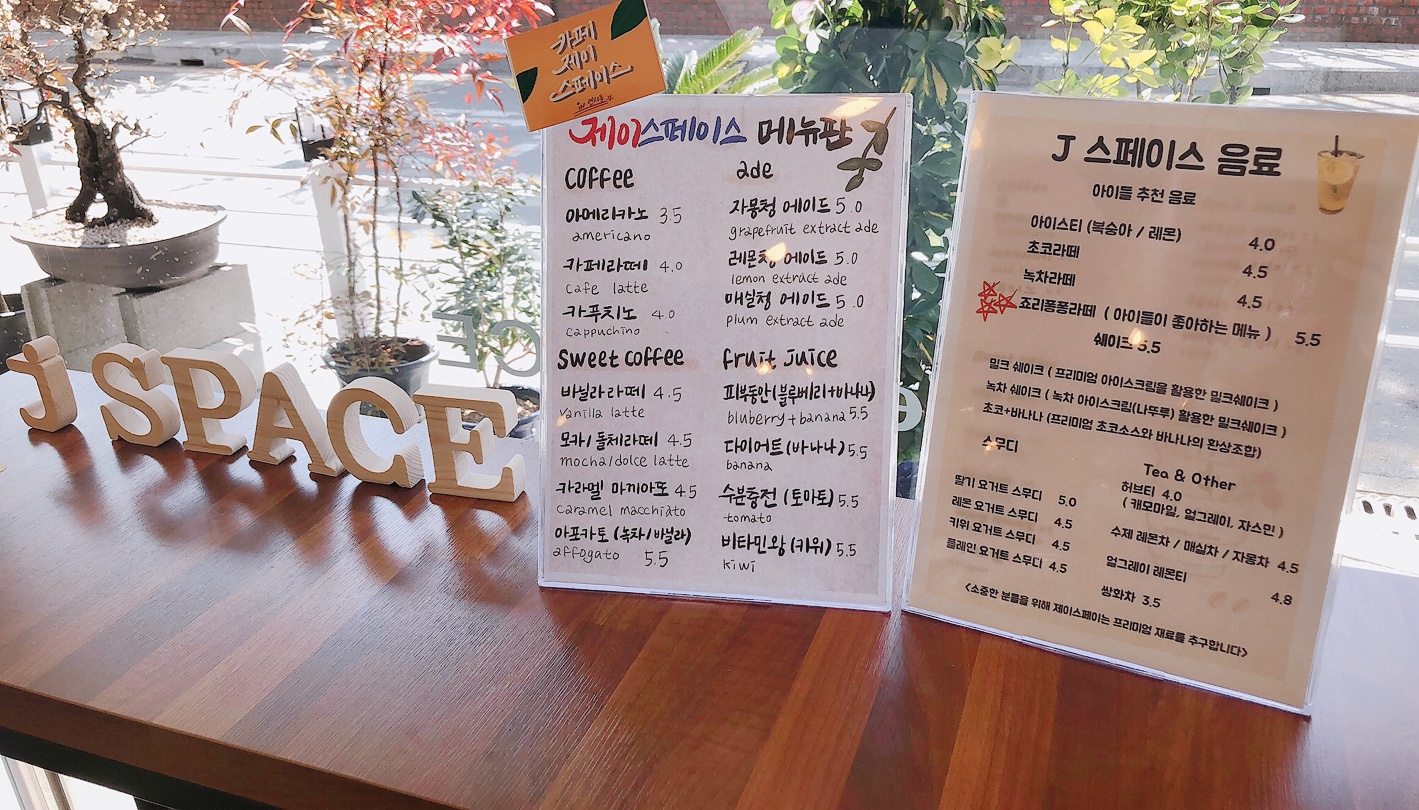 카페
제이
스페이스
j SPACE
제이스페이스 메뉴판
coffee
아메리카노 3.5
americano
카페라떼 4.0
cafe latte
카푸치노 4.0
cappuchino
sweet coffee
바닐라라떼 4.5
vanilla latte
모카/돌체라떼 4.5
mocha/dolce latte
카라멜 마끼아또 4.5
caramel macchiato
아포카토 (녹차/바닐라)
affogato 5.5
ade
자몽청 에이드 5.0
grapefruit extract ade
레몬청 에이드 5.0
lemon extract ade
매실청 에이드 5.0
plum extract ade
fruit juice
피부동안(블루베리+바나나)
bluberry+banana 5.5
다이어트(바나나) 5.5
banana
수분충전 (토마토) 5.5
tomato
비타민왕 (키위) 5.5
kiwi
J 스페이스 음료
아이들 추천 음료
아이스티 (복숭아 / 레몬) 4.0
초코라떼 4.5
녹차라떼 4.5
죠리퐁퐁라떼 ( 아이들이 좋아하는 메뉴 ) 5.5
쉐이크 5.5
밀크 쉐이크 ( 프리미엄 아이스크림을 활용한 밀크쉐이크 )
녹차 쉐이크 ( 녹차 아이스크림(나뚜루) 활용한 밀크쉐이크 )
초코+바나나 (프리미엄 초코소스와 바나나의 환상조합)
스무디
딸기 요거트 스무디 5.0
레몬 요거트 스무디 4.5
키위 요거트 스무디 4.5
플레인 요거트 스무디 4.5
Tea & Other
허브티 4.0
( 캐모마일, 얼그레이, 자스민 )
수제 레몬차 / 매실차 / 자몽차 4.5
얼그레이 레몬티 4.8
쌍화차 3.5
<소중한 분들을 위해 제이스페이는 프리미엄 재료를 추구합니다>